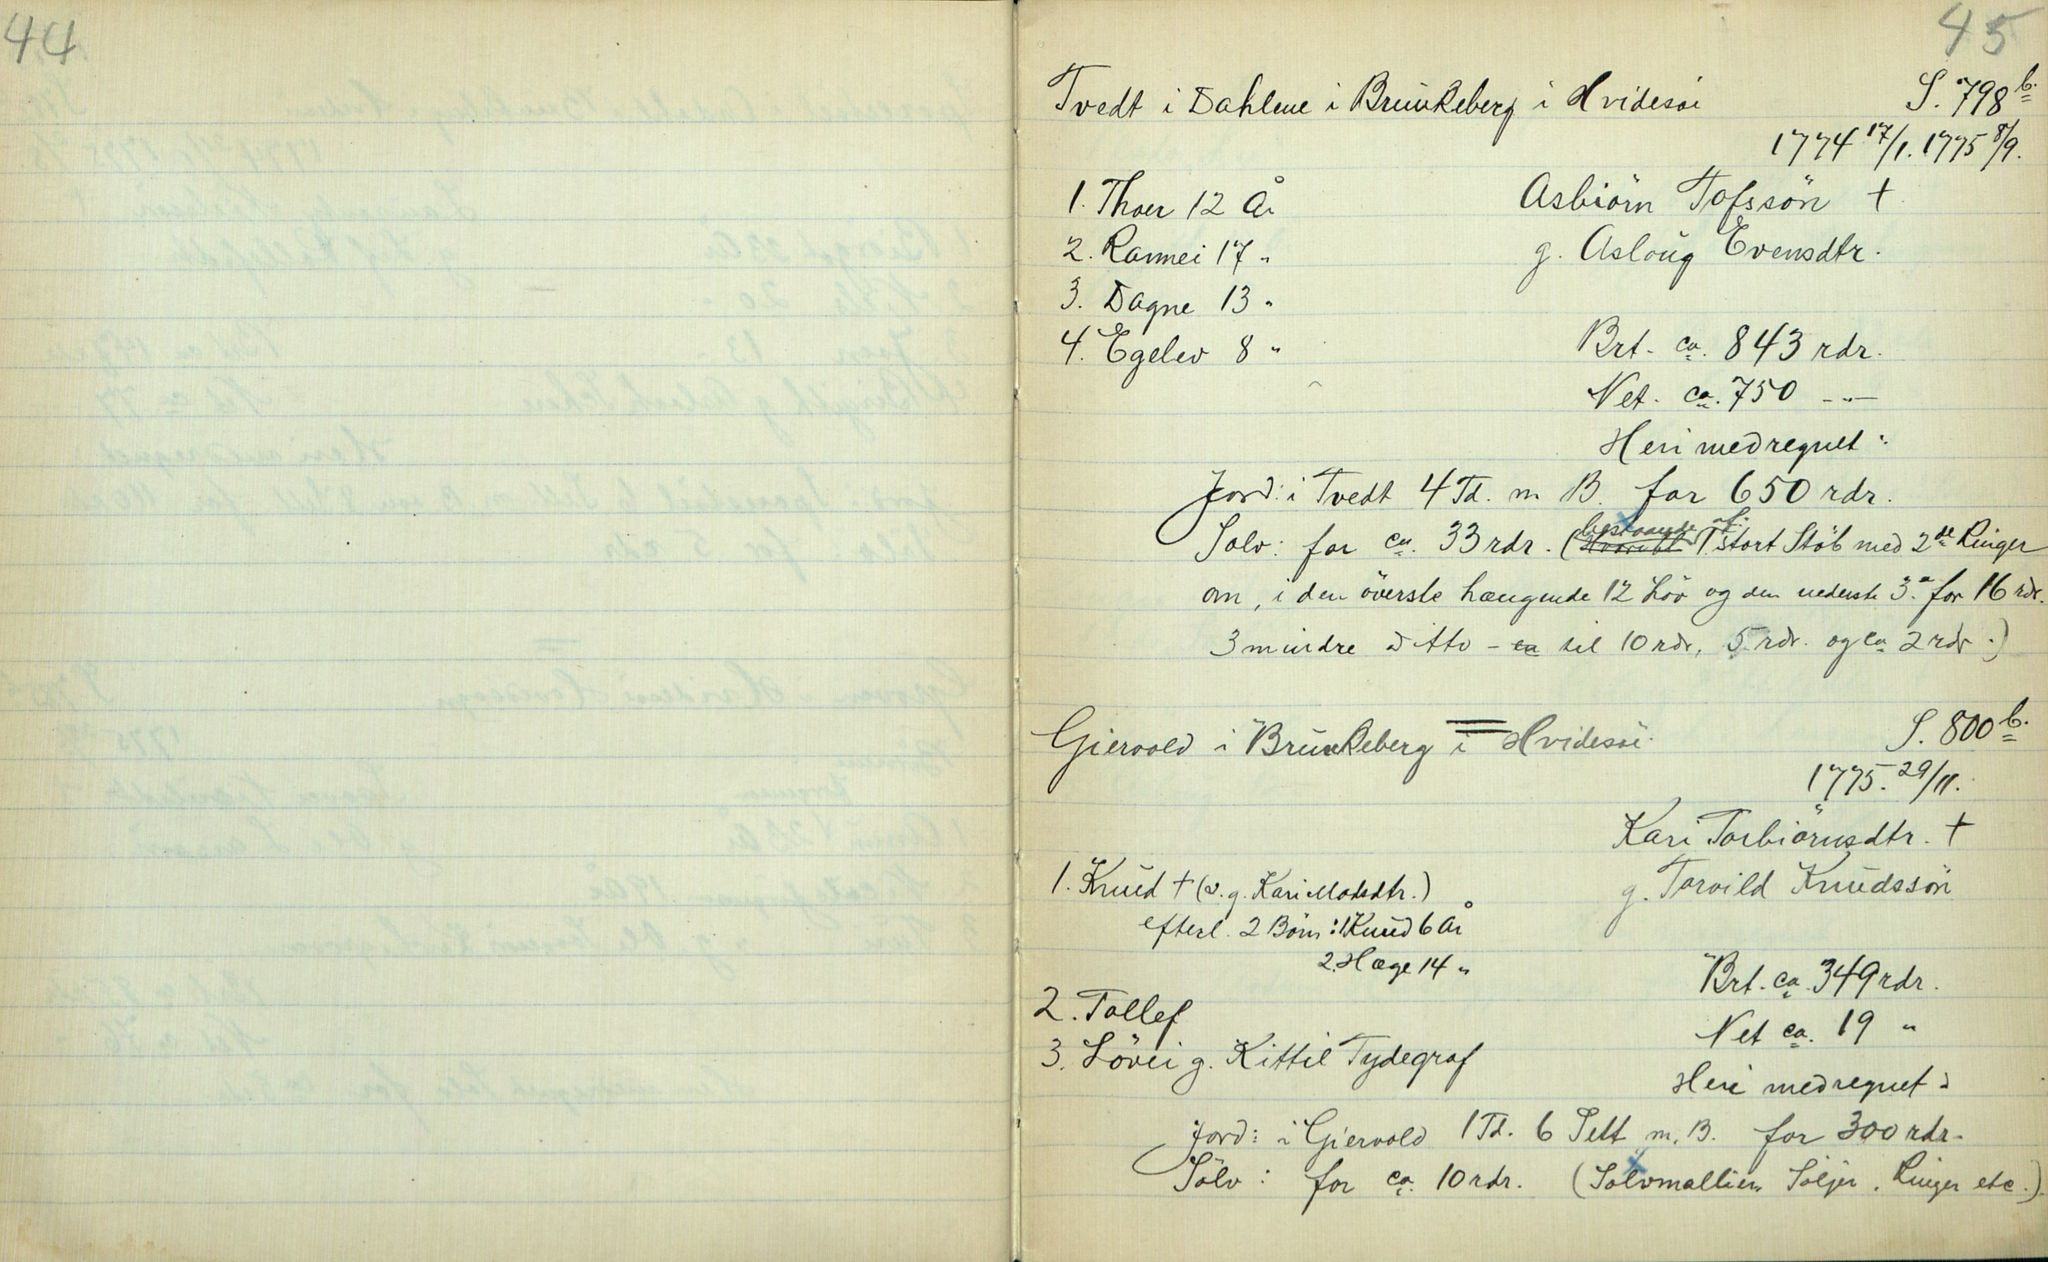 44
45
Tvedt i Dahlene i Brunkeberg i Hvidesøi S. 798 b.
1774 17/1. 1775 8/9.
1. Thoer 12 År Asbiörn Tofssön †
2. Rannei 17 " g. Aslaug Evensdtr.
3. Dagne 13 "
4. Egelev 8 " Brt. ca. 843 rdr.
Net. ca. 750 - " -
Heri medregnet:
Jord: i Tvedt 4 Td. m B. for 650 rdr.
Sölv: for ca. 33 rdr. (bestaaende af: 1 stort Stöb med 2de Ringer
om, i den överste hængende 12 Löv og den nederste 3. for 16 rdr.
3 mindre ditto - ca til 10 rdr, 5 rdr. og ca 2 rdr.)
Giervold i Brunkeberg i Hvidesöi S. 800 b.
1775. 29/11.
Kari Torbiörnsdtr. †
1. Knud † (v. g. Kari Matsdtr.) g. Torvild Knudssön
efterl. 2 Börn: 1 Knud 6 År
2. Hæge 14 " Brt. ca. 349 rdr.
2. Tollef Net ca. 19 "
3. Lövei g. Kittil Tydegraf
Heri medregnet:
Jord: i Giervold 1 Td. 6 Sett m. B. for 300 rdr.
Sölv: for ca. 10 rdr. (Sölvmallier, Söljer, Ringer etc.)